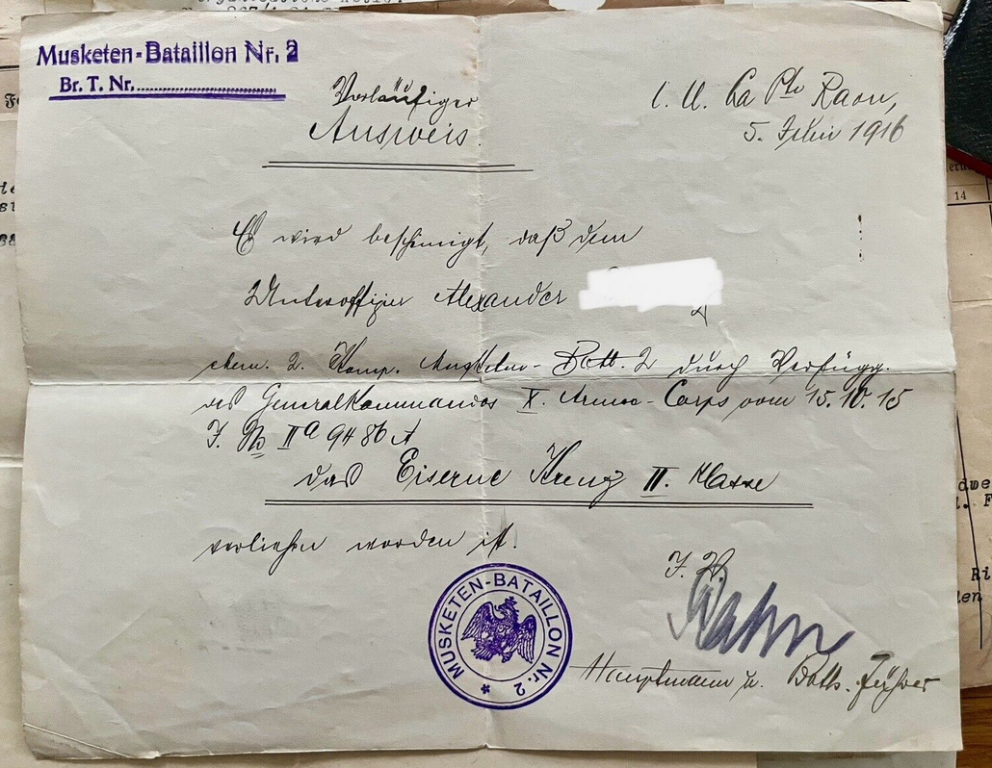 Musketen-Bataillon Nr. 2
Br. T. Nr.
Vorläufiger
Ausweis.
O. U. La Pte Raon,
5. 1916
Es wird bescheinigt, daß dem
Unteroffizier Alexander
2. Komp. Musketen-Batl. 2 durch Verfügg.
des Generalkommandos X. Armee-Corps vom 15.10.15
J. No IIa 9486 A
das Eiserne Kreuz II. Klasse
verliehen worden ist.
J. V.
Hauptmann u. Batls. Führer
MUSKETEN-BATAILLON Nr. 2
14